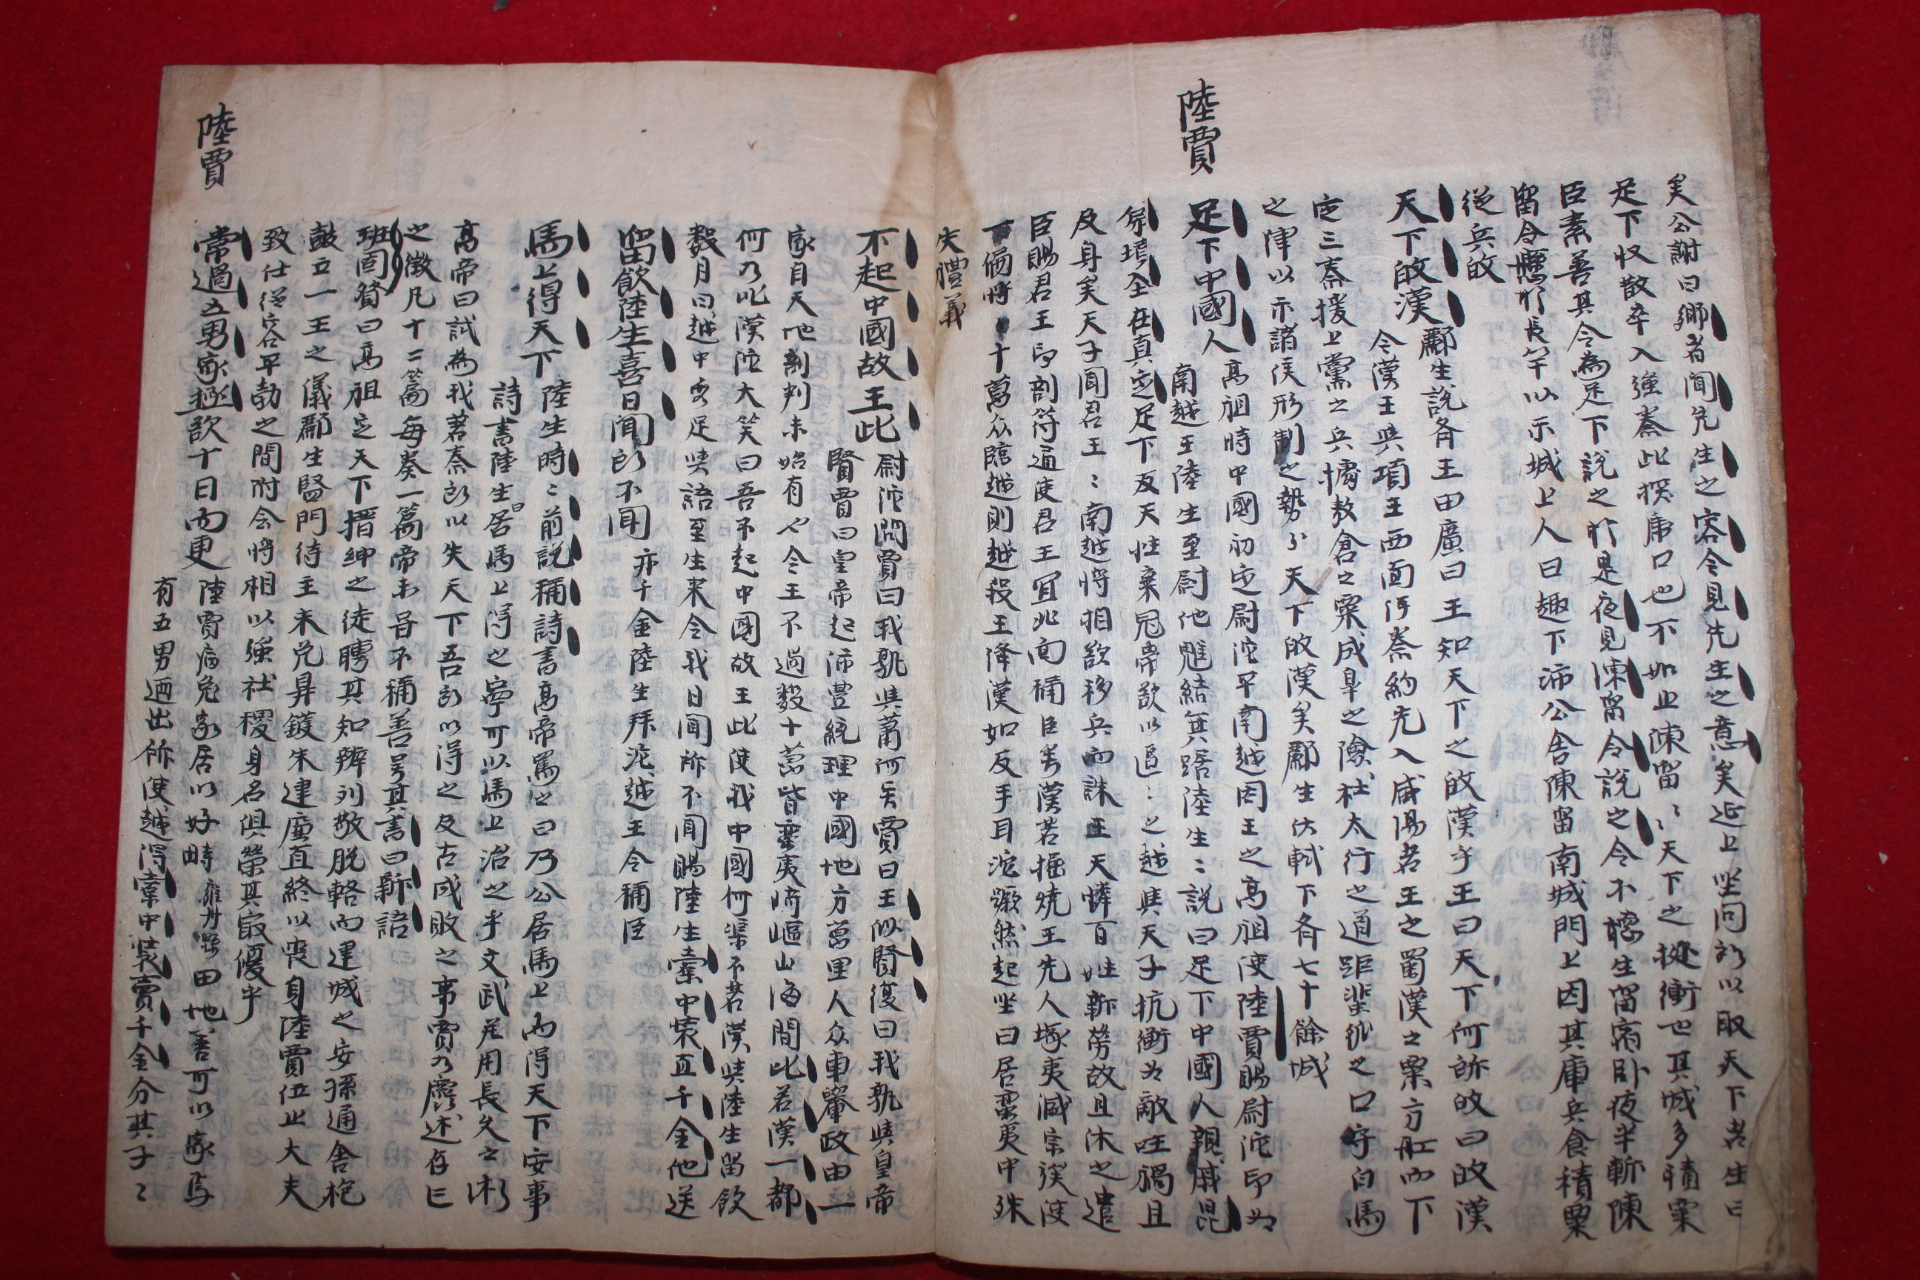 陸賈
矣公謝曰鄉者聞先生之容今見先生之意矣延上坐問所以取天下者生曰
足下收散卒入強秦此探虎口也不如止陳留〻天下之衝也其城多積粟
臣素善其令為足下說之於是夜見陳留令說之令不聽生留宿臥夜半斬陳
留令懸於長竿以示城上人曰趣下沛公舍陳留南城門上因其庫兵食積粟
從兵的
天下歸漢
酈生說齊王田廣曰王知天下之歸漢乎王曰天下何所歸曰歸漢
令漢王與項王西面伐秦約先入咸陽者王之蜀漢之粟方舡而下
定三秦援上黨之兵據敖倉之粟成皐之險杜太行之道距蜚狐之口守白馬
之津以示諸侯形制之勢天下歸漢矣酈生伏軾下齊七十餘城
足下中國人
高祖時中國初定尉佗平南越因王之高祖使陸賈賜尉佗印為
南越王陸生至尉他魋結箕踞陸生〻說曰足下中國人親戚昆
弟墳在真定足下反天性棄冠帶欲以區〻之越與天子抗衡為敵國禍且
及身矣天子聞君王〻南越將相欲移兵而誅王天憐百姓新勞故且休之遣
臣賜君王印剖符通使君王宜北面稱臣漢若掘燒王先人塚夷滅宗族使
十萬衆臨越則越殺王降漢如反手耳佗蹶然起坐曰居蠻夷中殊
失禮義
不起中國故王此
尉佗問賈曰我孰與蕭何賢賈曰王似賢復曰我孰與皇帝
賢賈曰皇帝起沛豊統理中國地方萬里人衆車轝政由一
家自天地剖判未始有也今王不過數十萬皆蠻夷崎嶇山海間此若漢一郡
何乃比漢陀大笑曰吾不起中國故王此使我中國何渠不若漢與陸生留飲
數月曰越中無足與語至生來令我日聞所不聞賜陸生橐中裝直千金他送
留飲陸生喜日聞所不聞
亦千金陸生拜沱越王令稱臣
馬上得天下
陸生時〻前說稱詩書高帝罵之曰乃公居馬上而得天下安事
詩書陸生曰居馬上得之寧可以馬上治之乎文武並用長久之術
高帝曰試為我著秦所以失天下吾所以得之及古成敗之事賈乃麁述存亡
之徵凡十二篇每奏一篇帝未甞不稱善号其書曰新語
班固贊曰高祖定天下搢紳之徒騁其知辨列敬脫輅而建城之安孫通舍枹
鼓立一王之儀酈生監門待主來免鼎鑊朱建廉直終以喪身陸賈位止大夫
致仕從容平勃之間附会將相以強社稷身名俱榮其最優乎
常過五男家極飲十日而更
陸賈病免家居以好畤田地善可以家焉
有五男迺出所使越得橐中裝賣千金分其子〻
陸賈